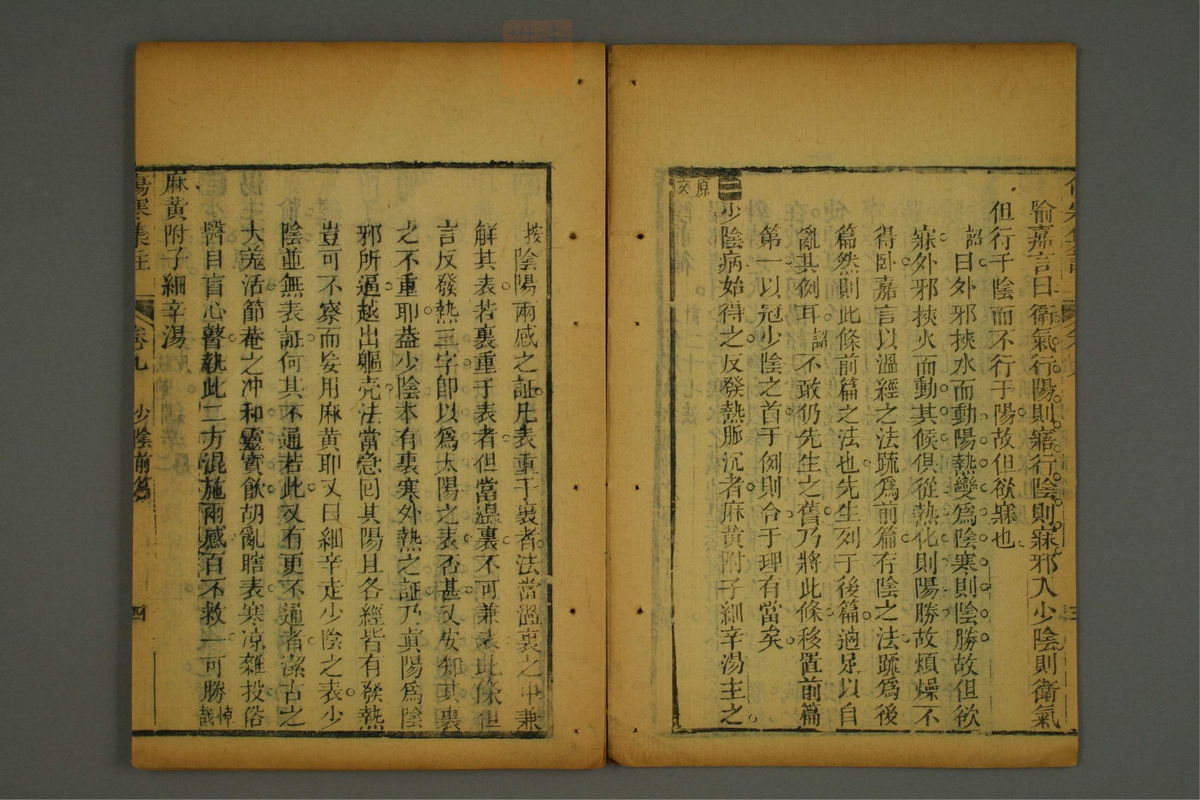 喻嘉言曰衛氣行陽則寤行陰則寐邪入少陰則衛氣
但行于陰而不行于陽故但欲寐也
詔曰外邪挾水而動陽熱變爲陰寒則陰勝故但欲
寐外邪挾火而動其候俱從熱化則陽勝故煩燥不
得卧嘉言以溫經之法疏爲前篇存陰之法疏爲後
篇然則此條前篇之法也先生列于後篇適足以自
亂其例耳詔不敢仍先生之舊乃將此條移置前篇
第一以冠少陰之首于例則合于理有當矣
原文
少陰病始得之反發熱脈沉者麻黃附子細辛湯主之
按陰陽兩感之証凡表重于裏者法當溫裏之中兼
解其表若裏重于表者但當溫裏不可兼表此條但
言反發熱三字卽以爲太陽之表否甚又安知其裏
之不重耶葢少陰本有裏寒外熱之証乃眞陽爲陰
邪所逼越出軀壳法當急回其陽且各經皆有發熱
豈可不察而妄用麻黃耶又曰細辛走少陰之表少
陰並無表証何其不通若此又有更不通者潔古之
大羗活節菴之冲和靈寳飲胡亂瞎表寒凉雜投俗
醫目盲心瞽執此二方混施兩感百不救一可勝悼哉
麻黃附子細辛湯
傷寒集註 卷九 少陰前篇 四